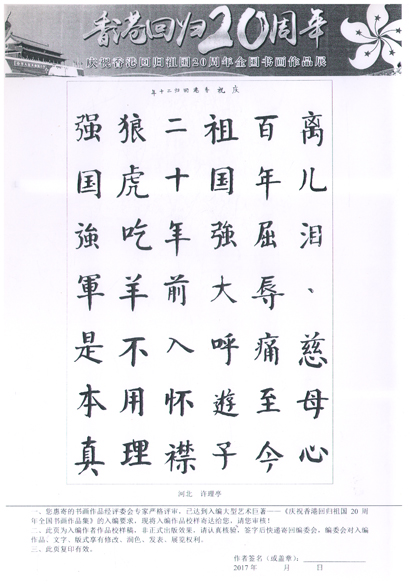 香港回归20周年
庆祝香港回归祖国20周年全国书画作品展
庆祝香港回归二十年
离儿泪、慈母心
百年屈辱痛至今
祖国強大呼遊子
二十年前入怀襟
狼虎吃羊不用理
强国強軍是本真
河北 许理亭
一、您惠寄的书画作品经评委会专家严格评审，已达到入编大型艺术巨著——《庆祝香港回归祖国 20 周
年全国书画作品集》的入编要求，现将入编作品校样寄达给您，请您审核！
二、此页为入编作者作品校样稿，非正式出版效果。请认真核验，签字后快递寄回编委会，编委会对入编
作品、文字、版式享有修改、润色、发表、展览权利。
三、此页复印有效。
作者签名（或盖章）：
2017 年 月 日